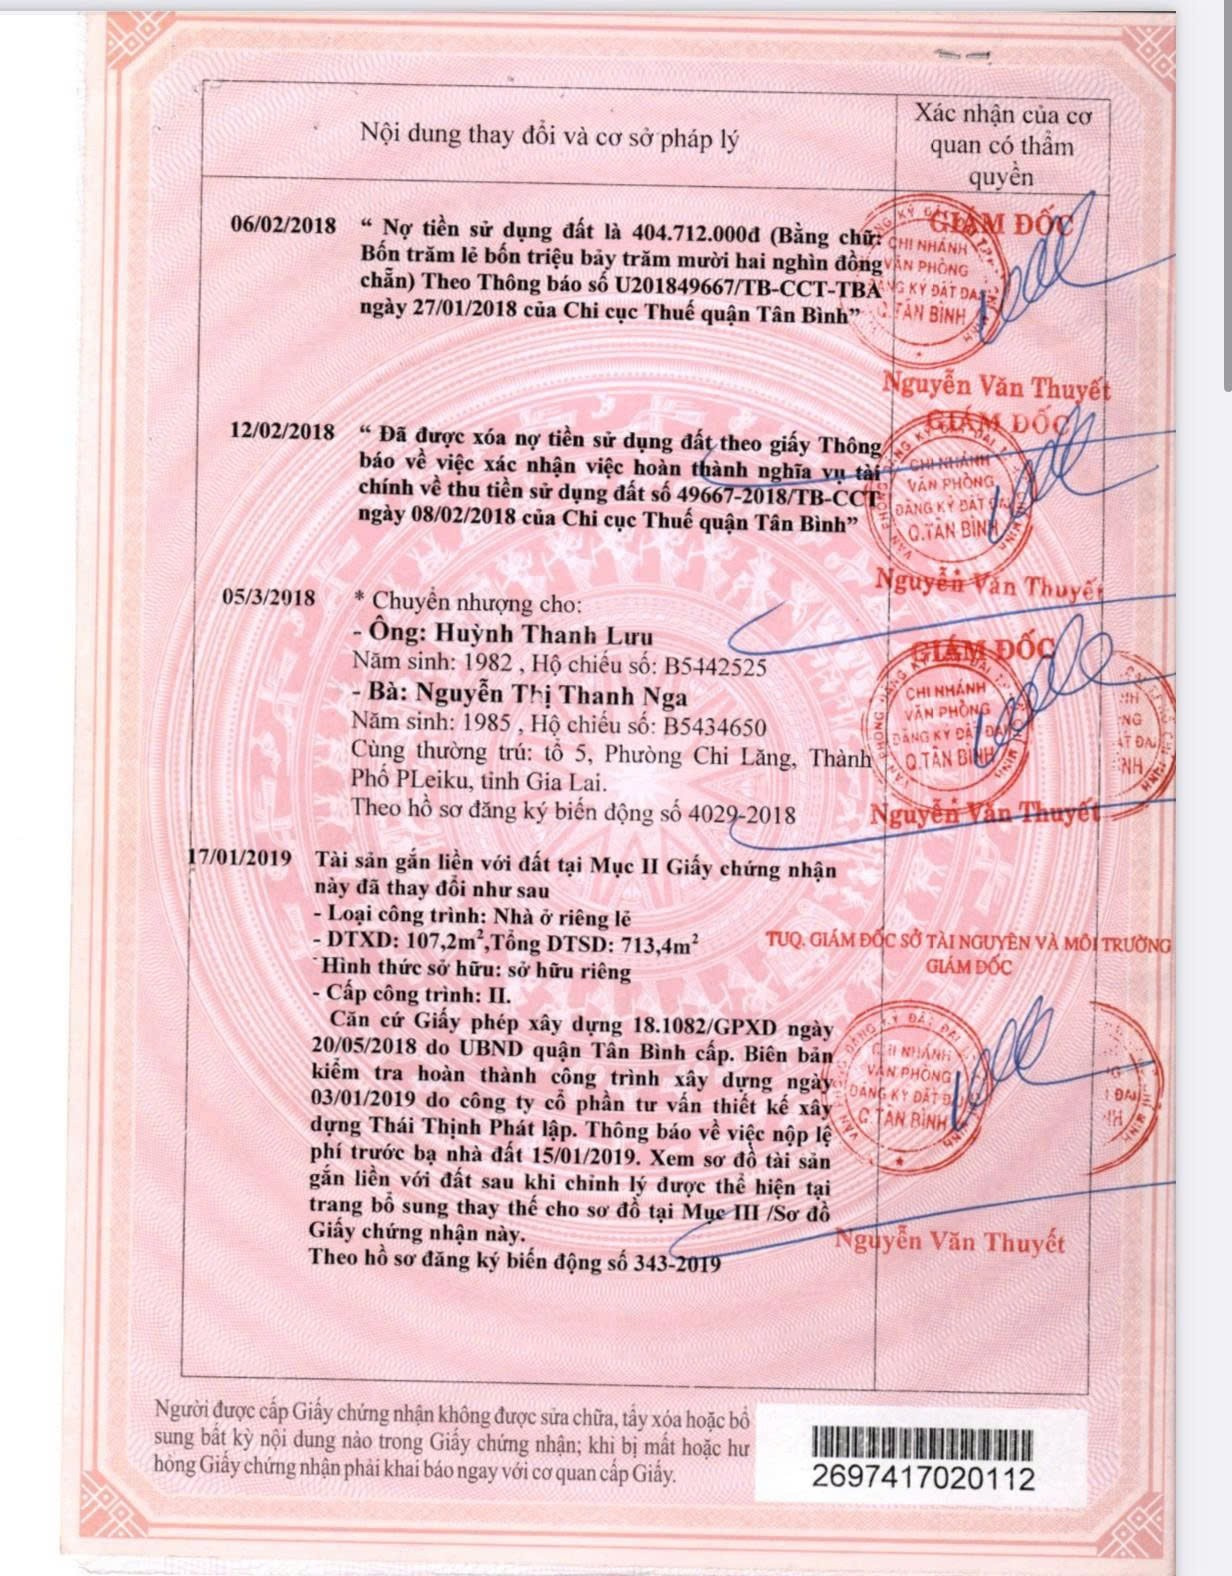 Nội dung thay đổi và cơ sở pháp lý
Xác nhận của cơ
quan có thẩm
quyền
06/02/2018 “ Nợ tiền sử dụng đất là 404.712.000đ (Bằng chữ:
Bốn trăm lẻ bốn triệu bảy trăm mười hai nghìn đồng
chẵn) Theo Thông báo số U201849667/TB-CCT-TBA
ngày 27/01/2018 của Chi cục Thuế quận Tân Bình”
GIÁM ĐỐC
CHI NHÁNH
VĂN PHÒNG
ĐĂNG KÝ ĐẤT ĐAI
Q.TÂN BÌNH
Nguyễn Văn Thuyết
12/02/2018 “ Đã được xóa nợ tiền sử dụng đất theo giấy Thông
báo về việc xác nhận việc hoàn thành nghĩa vụ tài
chính về thu tiền sử dụng đất số 49667-2018/TB-CCT
ngày 08/02/2018 của Chi cục Thuế quận Tân Bình”
GIÁM ĐỐC
CHI NHÁNH
VĂN PHÒNG
ĐĂNG KÝ ĐẤT ĐAI
Q.TÂN BÌNH
Nguyễn Văn Thuyết
05/3/2018 * Chuyển nhượng cho:
- Ông: Huỳnh Thanh Lưu
Năm sinh: 1982 , Hộ chiếu số: B5442525
- Bà: Nguyễn Thị Thanh Nga
Năm sinh: 1985 , Hộ chiếu số: B5434650
Cùng thường trú: tổ 5, Phường Chi Lăng, Thành
Phố PLeiku, tỉnh Gia Lai.
Theo hồ sơ đăng ký biến động số 4029-2018
GIÁM ĐỐC
CHI NHÁNH
VĂN PHÒNG
ĐĂNG KÝ ĐẤT ĐAI
Q.TÂN BÌNH
Nguyễn Văn Thuyết
17/01/2019 Tài sản gắn liền với đất tại Mục II Giấy chứng nhận
này đã thay đổi như sau
- Loại công trình: Nhà ở riêng lẻ
- DTXD: 107,2m²,Tổng DTSD: 713,4m²
Hình thức sở hữu: sở hữu riêng
- Cấp công trình: II.
Căn cứ Giấy phép xây dựng 18.1082/GPXD ngày
20/05/2018 do UBND quận Tân Bình cấp. Biên bản
kiểm tra hoàn thành công trình xây dựng ngày
03/01/2019 do công ty cổ phần tư vấn thiết kế xây
dựng Thái Thịnh Phát lập. Thông báo về việc nộp lệ
phí trước bạ nhà đất 15/01/2019. Xem sơ đồ tài sản
gắn liền với đất sau khi chỉnh lý được thể hiện tại
trang bổ sung thay thế cho sơ đồ tại Mục III /Sơ đồ
Giấy chứng nhận này.
Theo hồ sơ đăng ký biến động số 343-2019
TUQ. GIÁM ĐỐC SỞ TÀI NGUYÊN VÀ MÔI TRƯỜNG
GIÁM ĐỐC
CHI NHÁNH
VĂN PHÒNG
ĐĂNG KÝ ĐẤT ĐAI
Q.TÂN BÌNH
Nguyễn Văn Thuyết
Người được cấp Giấy chứng nhận không được sửa chữa, tẩy xóa hoặc bổ
sung bất kỳ nội dung nào trong Giấy chứng nhận; khi bị mất hoặc hư
hỏng Giấy chứng nhận phải khai báo ngay với cơ quan cấp Giấy.
2697417020112